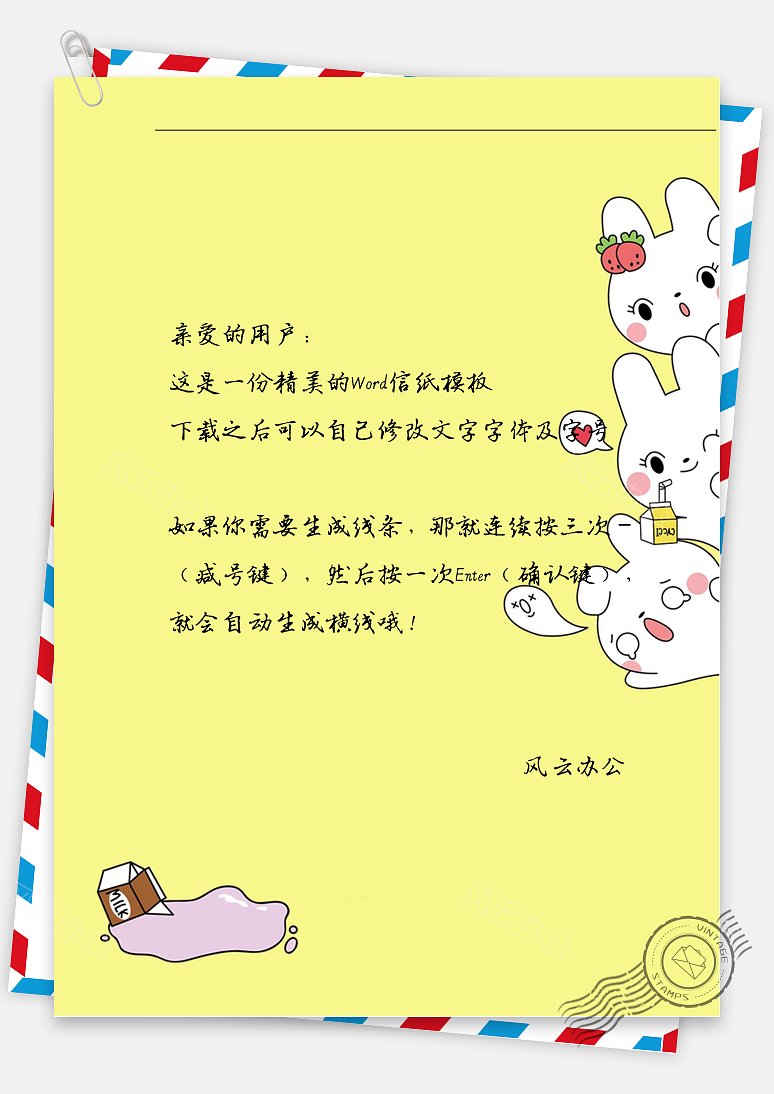 亲爱的用户：
这是一份精美的Word信纸模板
下载之后可以自己修改文字字体及字号
如果你需要生成线条，那就连续按三次一
（减号键），然后按一次Enter（确认键），
就会自动生成横线哦！
风云办公
MILK
VINTAGE
STAMPS
风云办公
风云办公
风云办公
风云办公